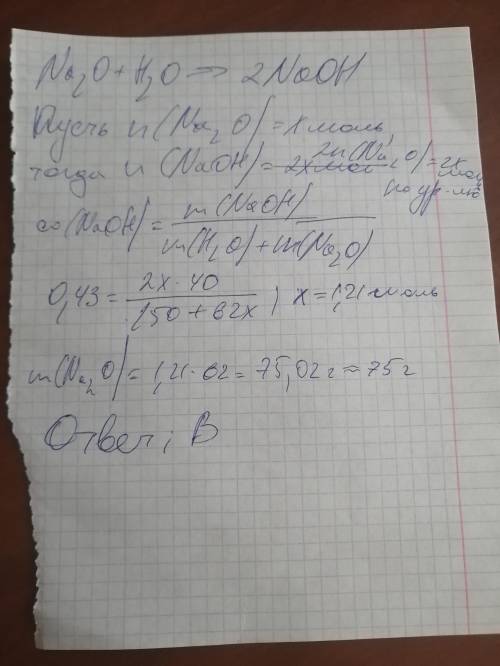 Na₂O + H₂O → 2NaOH
Пусть n(Na₂O) = x моль,
тогда n(NaOH) = 2n(Na₂O) = 2x моль
по ур-ию
ω(NaOH) = m(NaOH) / m(H₂O) + m(Na₂O)
0,43 = 2x · 40 / 150 + 62x ; x = 1,21 моль
m(Na₂O) = 1,21 · 62 = 75,02 г ≈ 75 г
Ответ: В